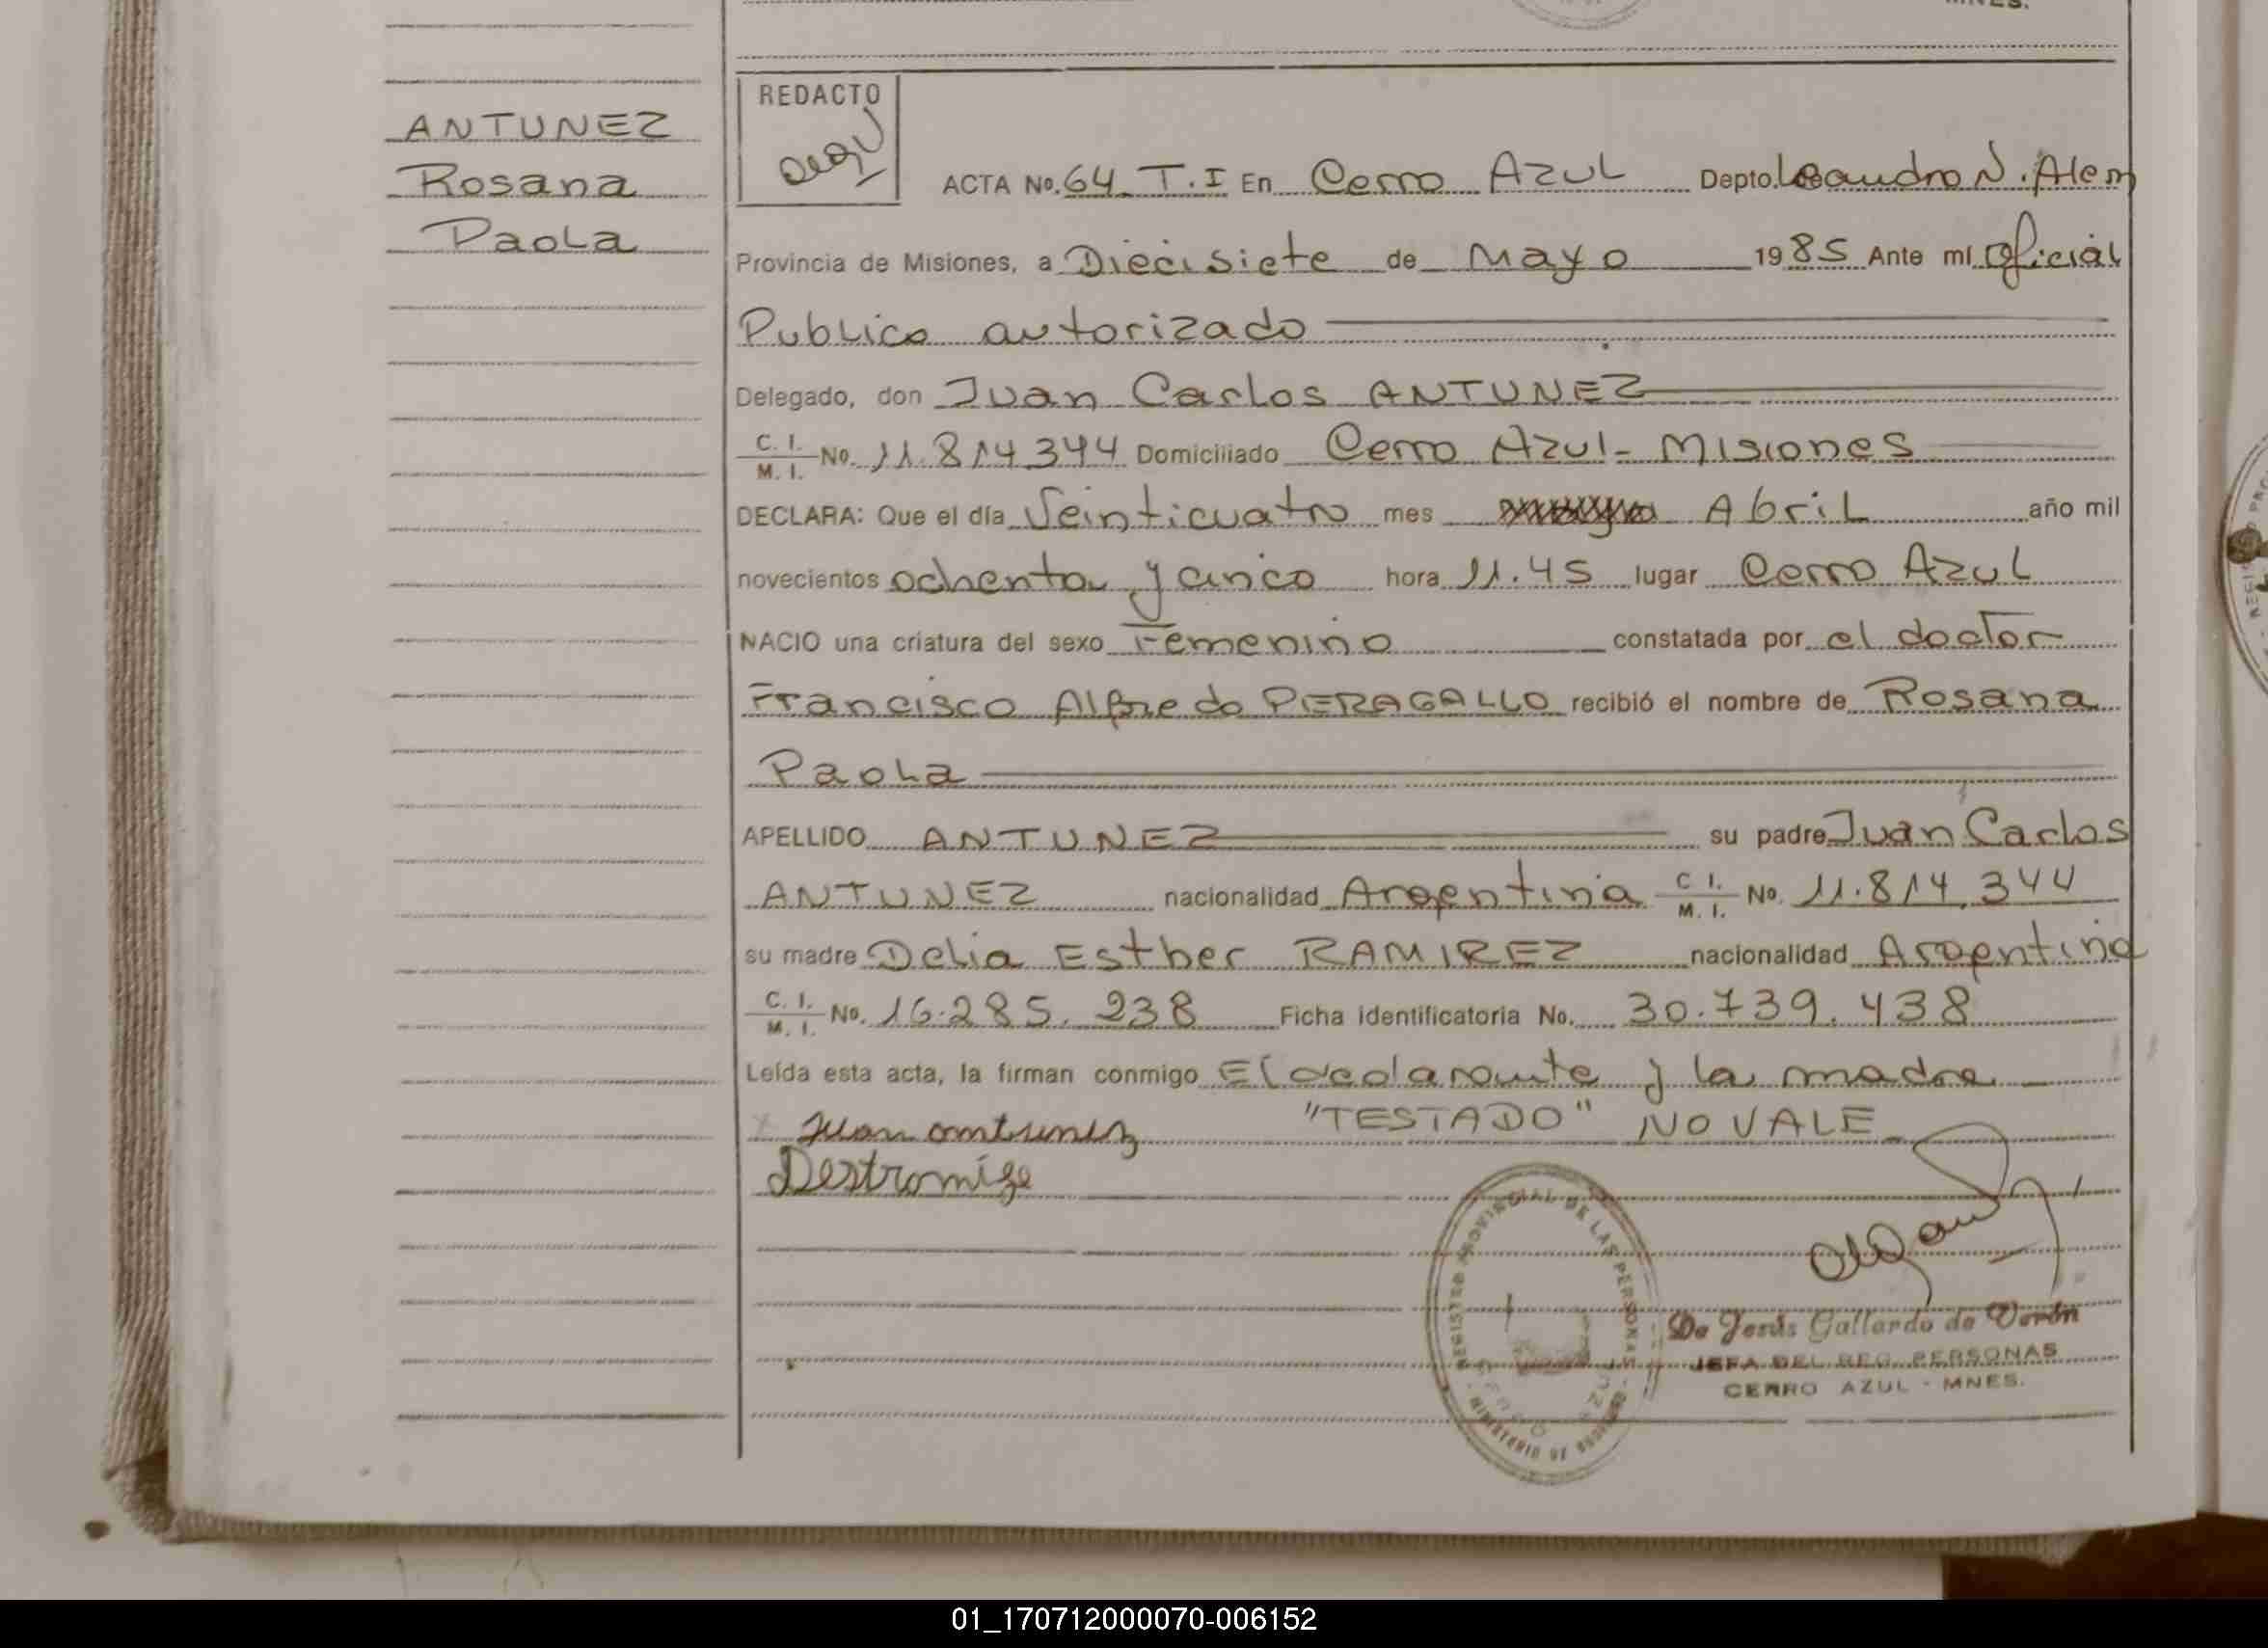 MNES.
ANTUNEZ
Rosana
Paola
REDACTO
ACTA No. 64 T.I En Cerro Azul Depto. Leandro N. Alem
Provincia de Misiones, a Diecisiete de Mayo 1985 Ante mí Oficial
Publico autorizado
Delegado, don Juan Carlos ANTUNEZ
C. I. / M. I. No. 11.814344 Domiciliado Cerro Azul - Misiones
DECLARA: Que el día Veinticuatro mes Abril año mil
novecientos ochenta y cinco hora 11.45 lugar Cerro Azul
NACIO una criatura del sexo Femenino constatada por el doctor
Francisco Alfredo PERAGALLO recibió el nombre de Rosana
Paola
APELLIDO ANTUNEZ su padre Juan Carlos
ANTUNEZ nacionalidad Argentina C. I. / M. I. No. 11.814.344
su madre Delia Esther RAMIREZ nacionalidad Argentina
C. I. / M. I. No. 16.285.238 Ficha identificatoria No. 30.739.438
Leída esta acta, la firman conmigo El declarante y la madre
Juan antunez "TESTADO" NO VALE
REGISTRO PROVINCIAL DE LAS PERSONAS
De Jesús Gallardo de Verón
JEFA DEL REG. PERSONAS
CERRO AZUL - MNES.
01_170712000070-006152